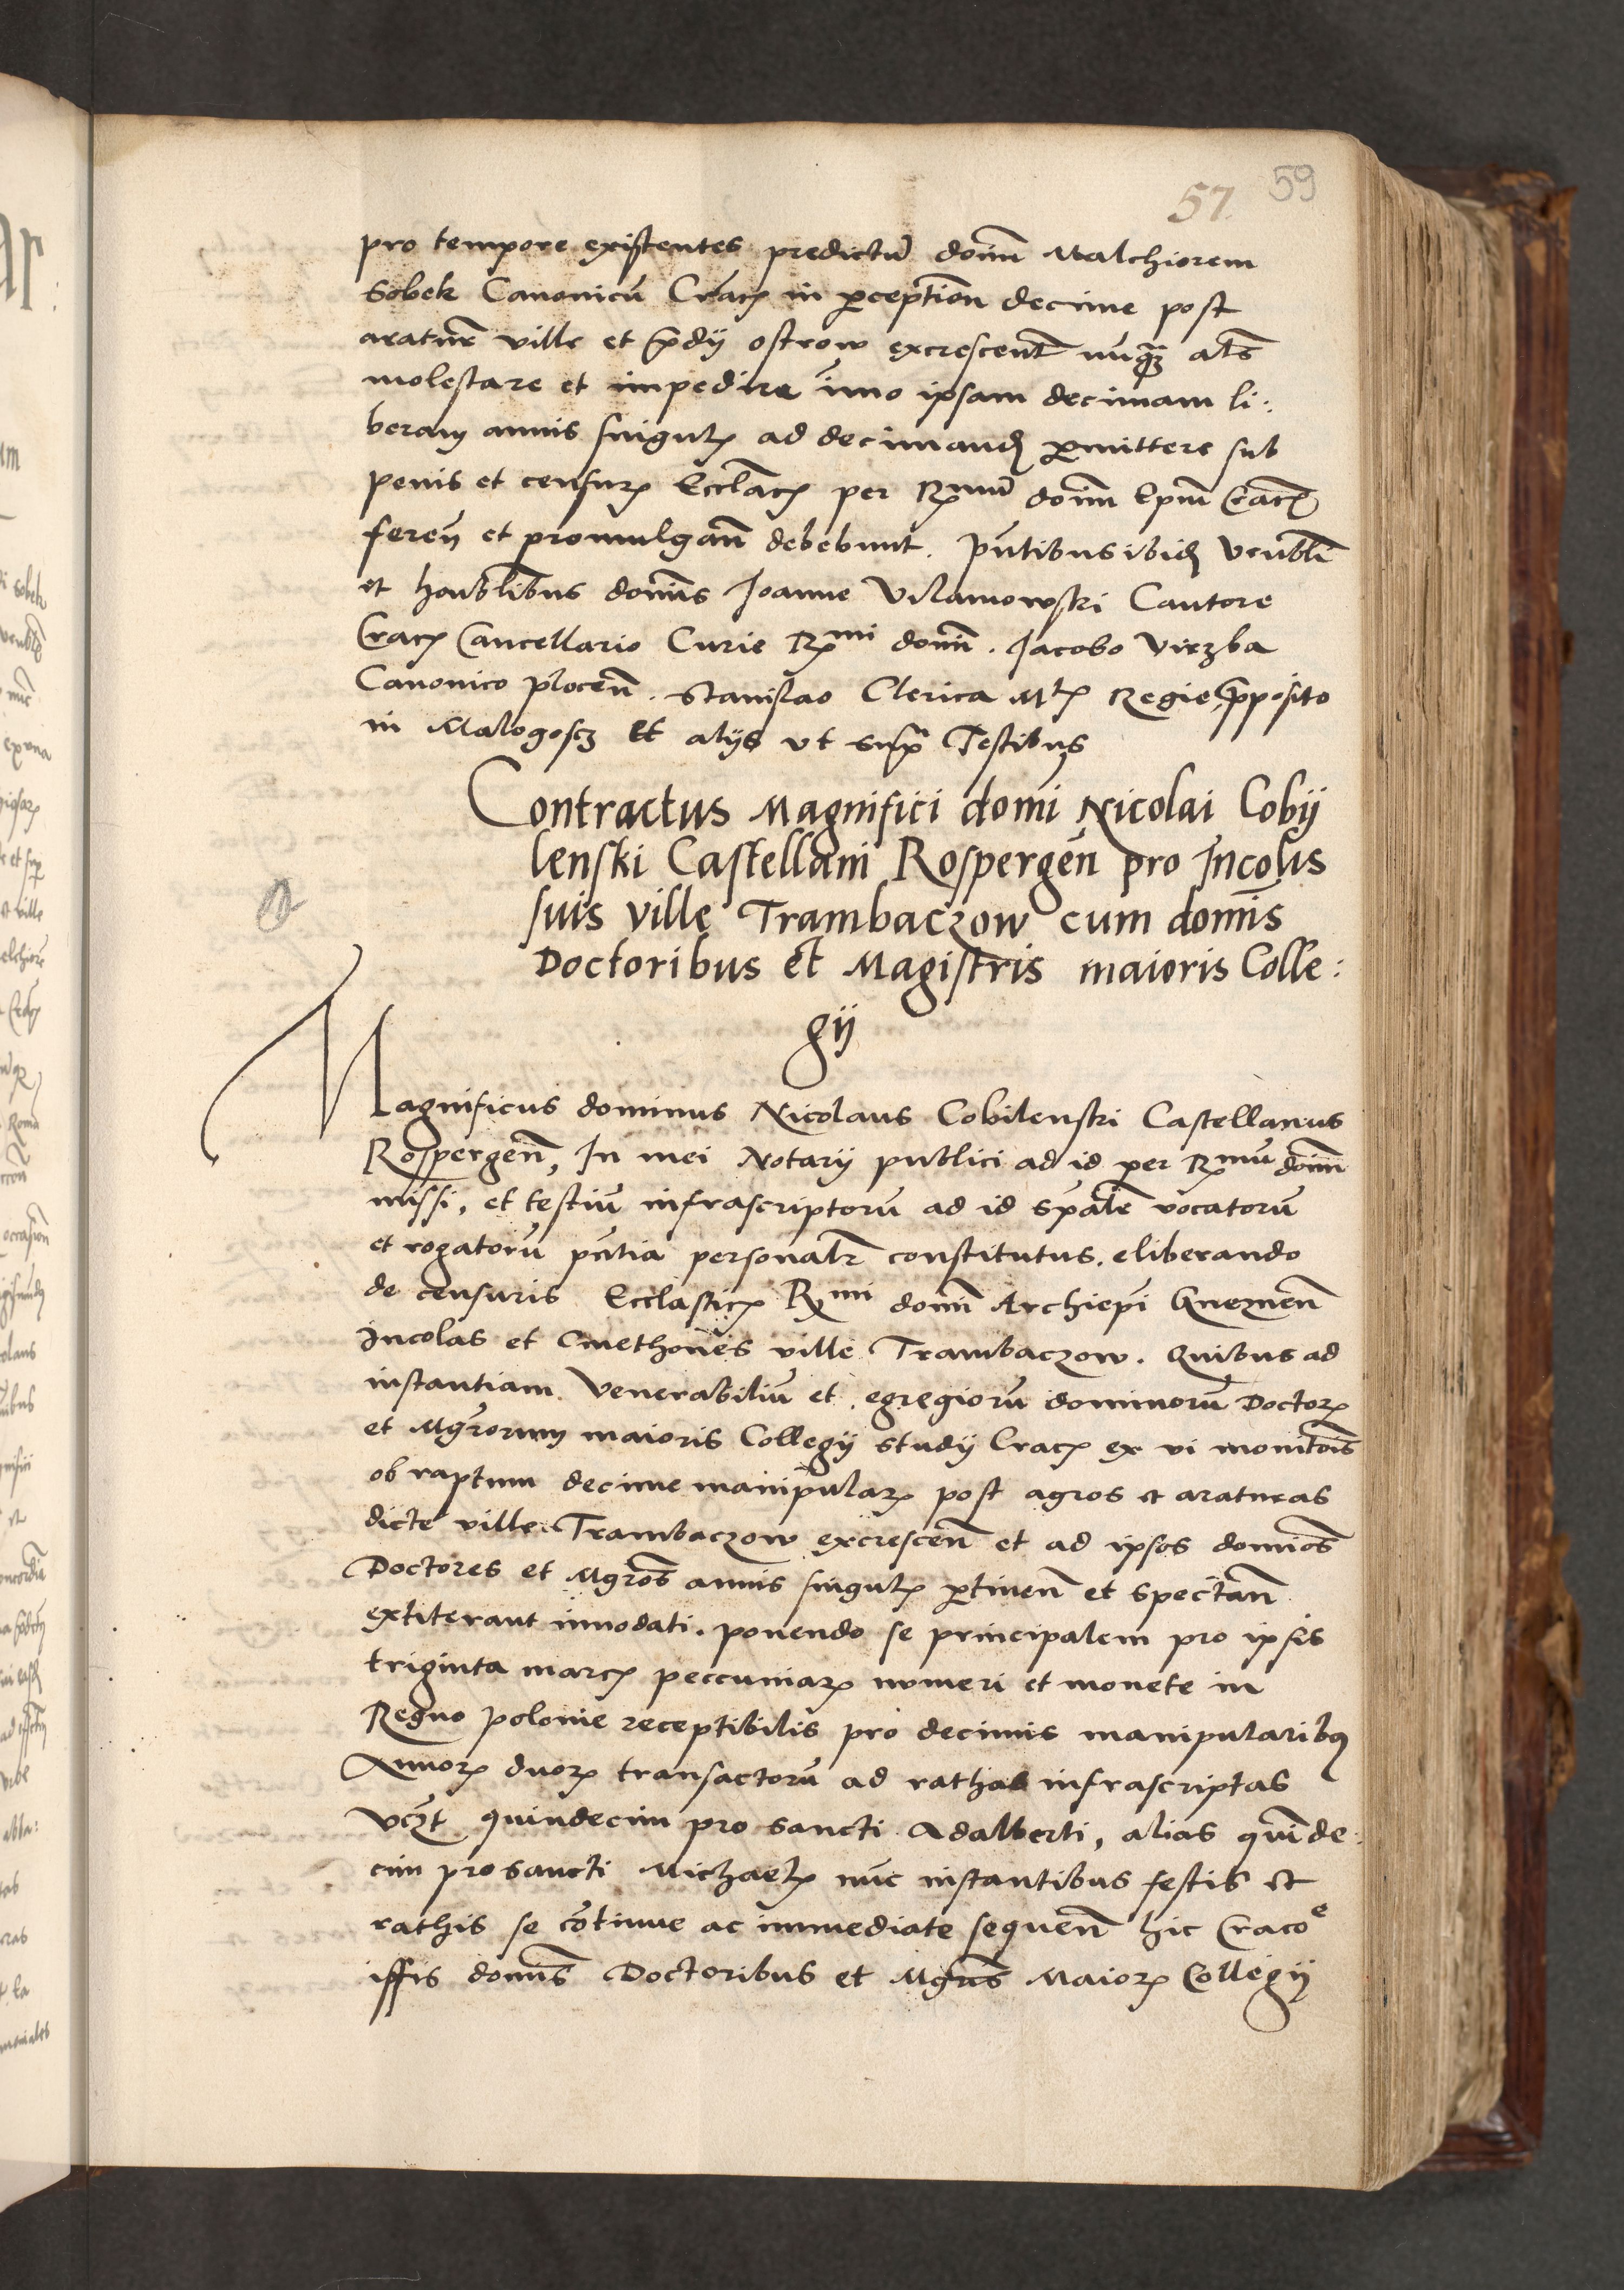 57. 59
pro tempore existentes predictū domī Malchiorem
Sobek Canonicū Cracꝭ in ꝑceptioñ decime post
araturꝭ ville et p̄dij ostrow excrescent̄ nuqꝫ alŝ
molestare et impedire imo ipsam decimam li:
beram annis singulꝭ ad decimandꝭ ꝑmittere sub
penis et censurꝭ Eccl̄acꝭ per R.mū domī Ep̄m Cracꝭ
fereñ et promulgañ debebunt. P̄ntibus ibidꝭ Ven̄bli
et hon̄blibus domīs Joanne Vilamowski Cantore
Cracꝭ Cancellario Curie R.mi domī. Jacobo Virzba
Canonico ploceñ. Stanislao Clerica Mtꝭ Regie p̄posito
in Malogoscz et alijs ut supꝭ Testibus
Contractus Magnifici domī Nicolai Cobij
lenski Castellani Rospergeñ pro Incolis
suis ville Trambaczow cum domīs
Doctoribus et Magistris maioris Colle:
gij
Magnificus dominus Nicolaus Cobilenski Castellanus
Rospergeñ, In mei Notarij publici ad id per R.mū domī
missi, et testiū infrascriptorū ad id sp̄alr̄ vocatorū
et rogatorū p̄ntia personalr̄ constitutus. eliberando
de censuris Eccl̄asticꝭ R.mi domī Archiep̄i Gnezneñ
Incolas et Cmethones ville Trambaczow. Quibus ad
instantiam Venerabiliū et egregiorū dominorū Doctorꝭ
et Mgr̄orum maioris Collegij studij Cracꝭ ex vi monitōis
ob raptum decime manipularꝭ post agros et araturas
dicte ville Trambaczow excresceñ et ad ipsos domīos
Doctores et Mgr̄os annis singulꝭ ꝑtineñ et spectañ
extiterant innodati. ponendo se principalem pro ipsis
triginta marcꝭ peccuniarꝭ numeri et monete in
Regno Polonie receptibilis pro decimis manipularibꝰ
Annorꝭ duorꝭ transactorū ad rathas infrascriptas
vꝫt quindecim pro sancti Adalberti, alias quīde
cim pro sancti Michaelꝭ nūc instantibus festis et
rathis se cōtinue ac immediate sequeñ hic Cracoe
ipsis domīs Doctoribus et Mgr̄is Maiorꝭ Collegij